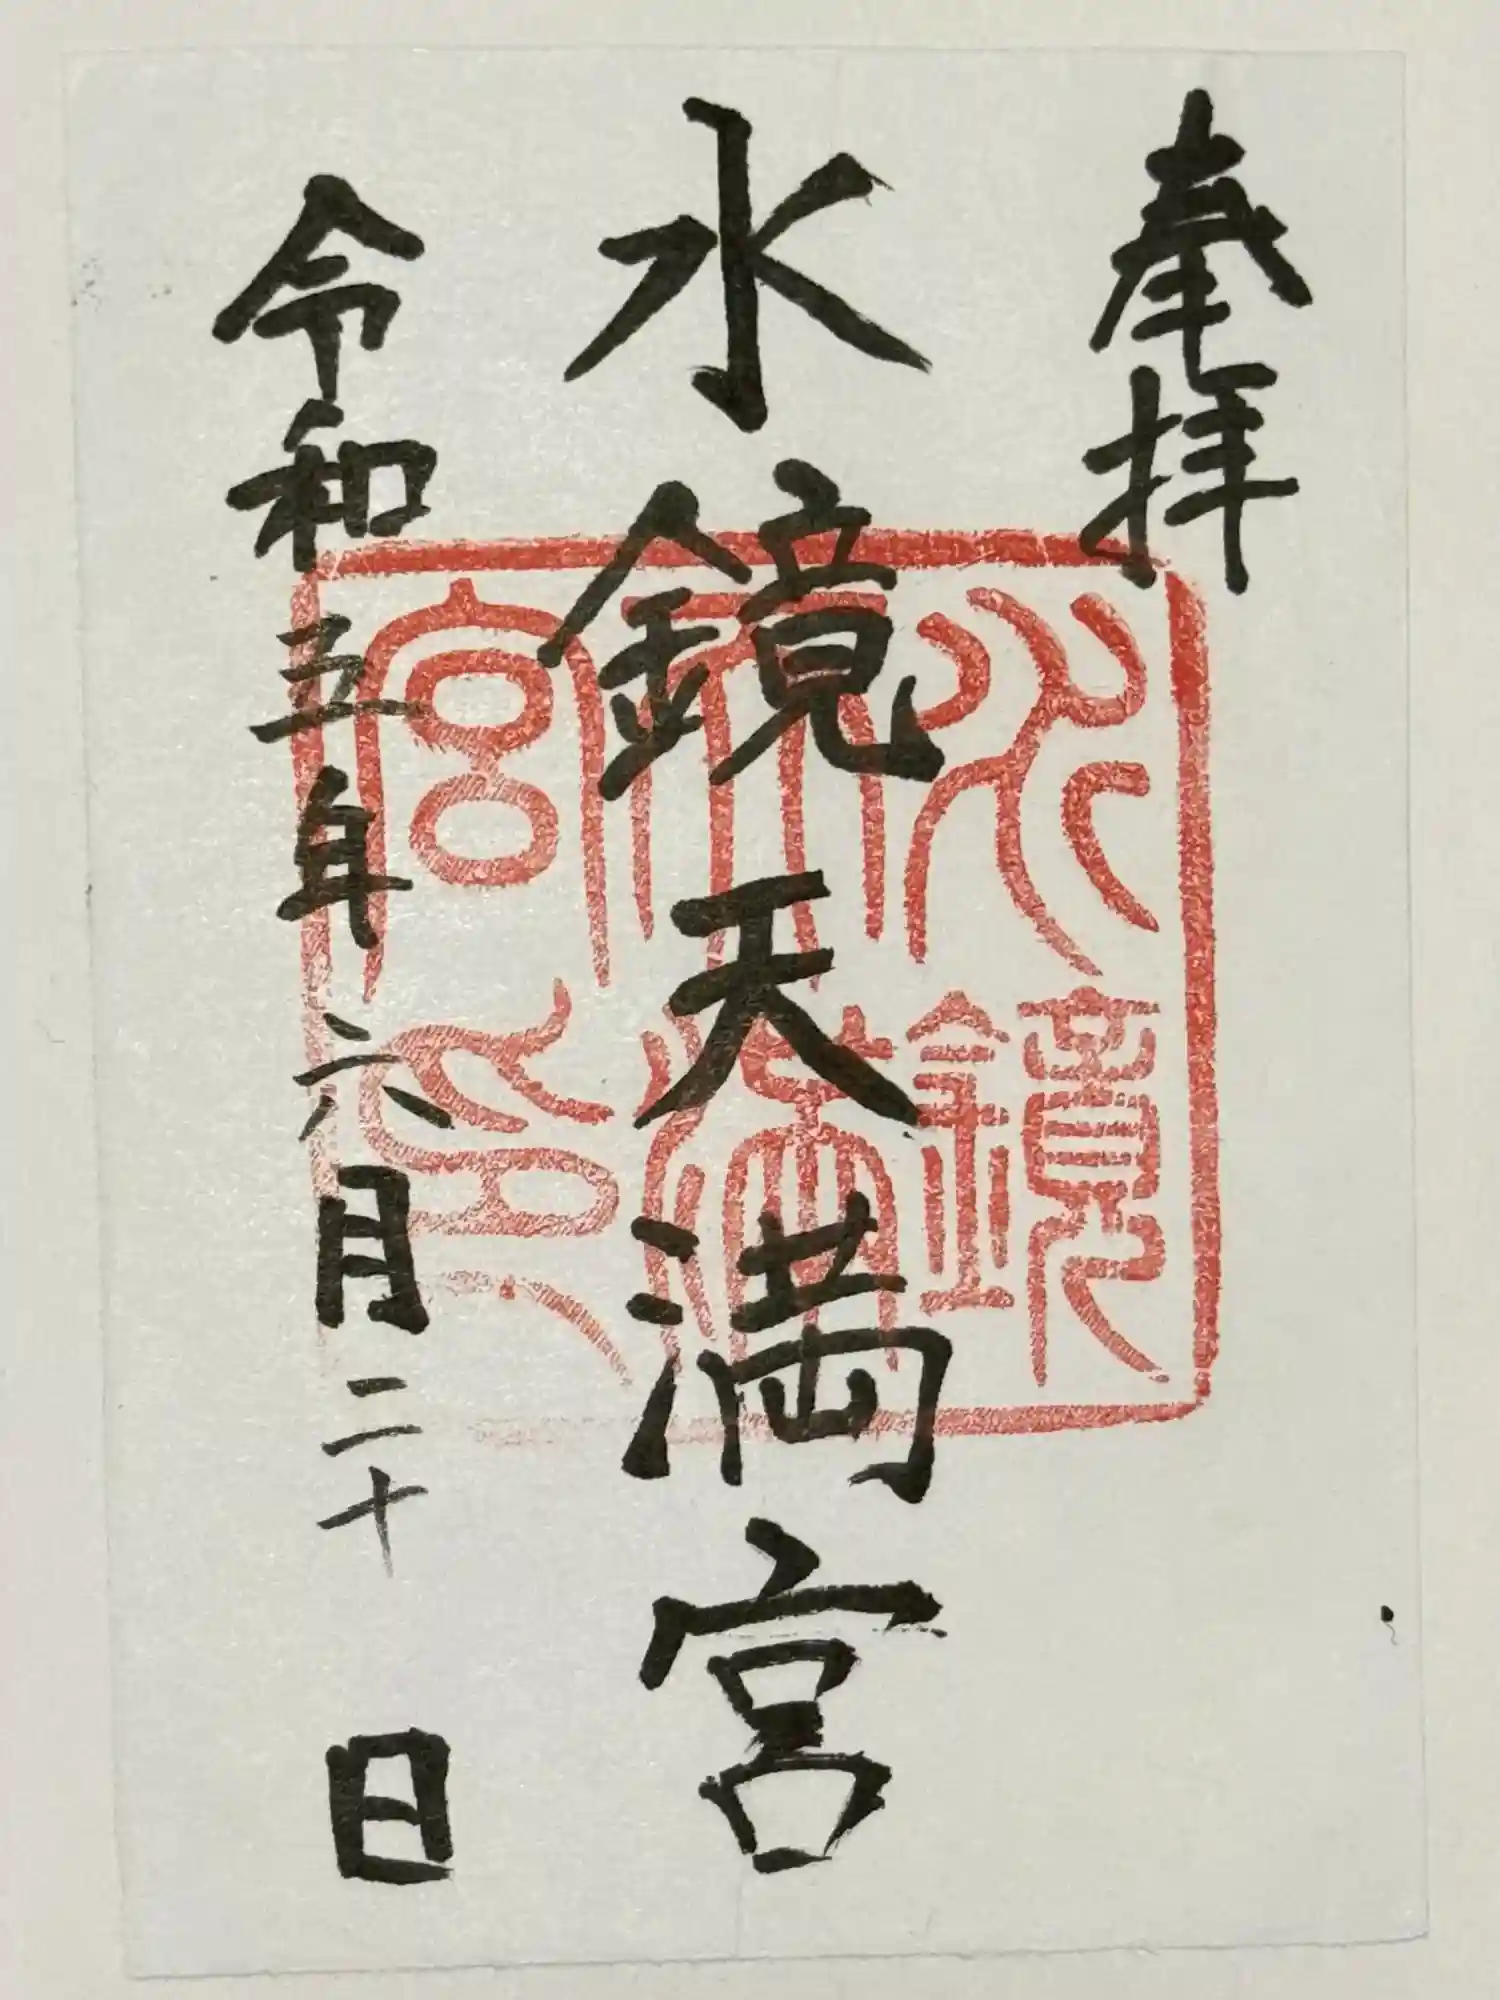 奉拝
水鏡天満宮
水鏡天満宮印
令和五年六月二十日